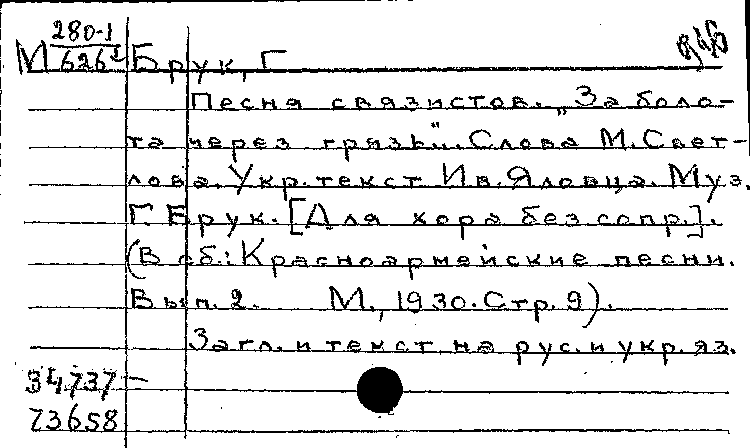 280-1
М 626
Брук, Г
Песня связистов. „За боло-
та через грязь". Слова М. Свет-
лова. Укр. текст Ив. Яловца. Муз.
Г. Брук. [Для хора без сопр.].
(В сб.: Красноармейские песни.
Вып. 2. М., 1930. Стр. 9).
Загл. и текст на рус. и укр. яз.
34737 —
73658